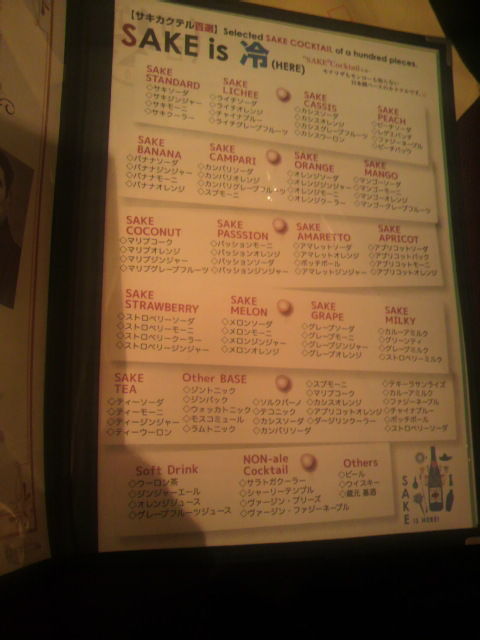 【サキカクテル百選】Selected SAKE COCKTAIL of a hundred pieces.
SAKE is 冷(HERE)
"SAKE"Cocktail
SAKE
STANDARD
◇サキソーダ
◇サキジンジャー
◇サキモーニ
◇サキクーラー
SAKE
LICHEE
◇ライチソーダ
◇ライチオレンジ
◇チャイナブルー
◇ライチグレープフルーツ
SAKE
CASSIS
◇カシスソーダ
◇カシスオレンジ
◇カシスグレープフルーツ
◇カシスウーロン
SAKE
PEACH
◇ピーチソーダ
◇レゲエパンチ
◇ファジーネーブル
◇ピーチパック
SAKE
BANANA
◇バナナソーダ
◇バナナジンジャー
◇バナナモーニ
◇バナナオレンジ
SAKE
CAMPARI
◇カンパリソーダ
◇カンパリオレンジ
◇カンパリグレープフルーツ
◇スプモーニ
SAKE
ORANGE
◇オレンジソーダ
◇オレンジジンジャー
◇オレンジモーニ
◇オレンジクーラー
SAKE
MANGO
◇マンゴーソーダ
◇マンゴーモーニ
◇マンゴーオレンジ
◇マンゴーグレープフルーツ
SAKE
COCONUT
◇マリブコーク
◇マリブオレンジ
◇マリブジンジャー
◇マリブグレープフルーツ
SAKE
PASSSION
◇パッションモーニ
◇パッションオレンジ
◇パッションソーダ
◇パッションジンジャー
SAKE
AMARETTO
◇アマレットソーダ
◇アマレットオレンジ
◇ボッチボール
◇アマレットジンジャー
SAKE
APRICOT
◇アプリコットソーダ
◇アプリコットパック
◇アプリコットモーニ
◇アプリコットオレンジ
SAKE
STRAWBERRY
◇ストロベリーソーダ
◇ストロベリーモーニ
◇ストロベリークーラー
◇ストロベリージンジャー
SAKE
MELON
◇メロンソーダ
◇メロンモーニ
◇メロンジンジャー
◇メロンオレンジ
SAKE
GRAPE
◇グレープソーダ
◇グレープモーニ
◇グレープジンジャー
◇グレープオレンジ
SAKE
MILKY
◇カルーアミルク
◇グリーンティ
◇グレープミルク
◇ストロベリーミルク
SAKE
TEA
◇ティーソーダ
◇ティーモーニ
◇ティージンジャー
◇ティーウーロン
Other BASE
◇ジントニック
◇ジンバック
◇ウォッカトニック
◇モスコミュール
◇ラムトニック
◇ソルクバーノ
◇テコニック
◇カシスソーダ
◇カンパリソーダ
◇スプモーニ
◇マリブコーク
◇カシスオレンジ
◇アプリコットオレンジ
◇ダージリンクーラー
◇テキーラサンライズ
◇カルーアミルク
◇ファジーネーブル
◇チャイナブルー
◇ボッチボール
◇ストロベリーソーダ
Soft Drink
◇ウーロン茶
◇ジンジャーエール
◇オレンジジュース
◇グレープフルーツジュース
NON-ale
Cocktail
◇サラトガクーラー
◇シャーリーテンプル
◇ヴァージン・ブリーズ
◇ヴァージン・ファジーネーブル
Others
◇ビール
◇ウイスキー
◇蔵元 基酒
SAKE
IS HERE!